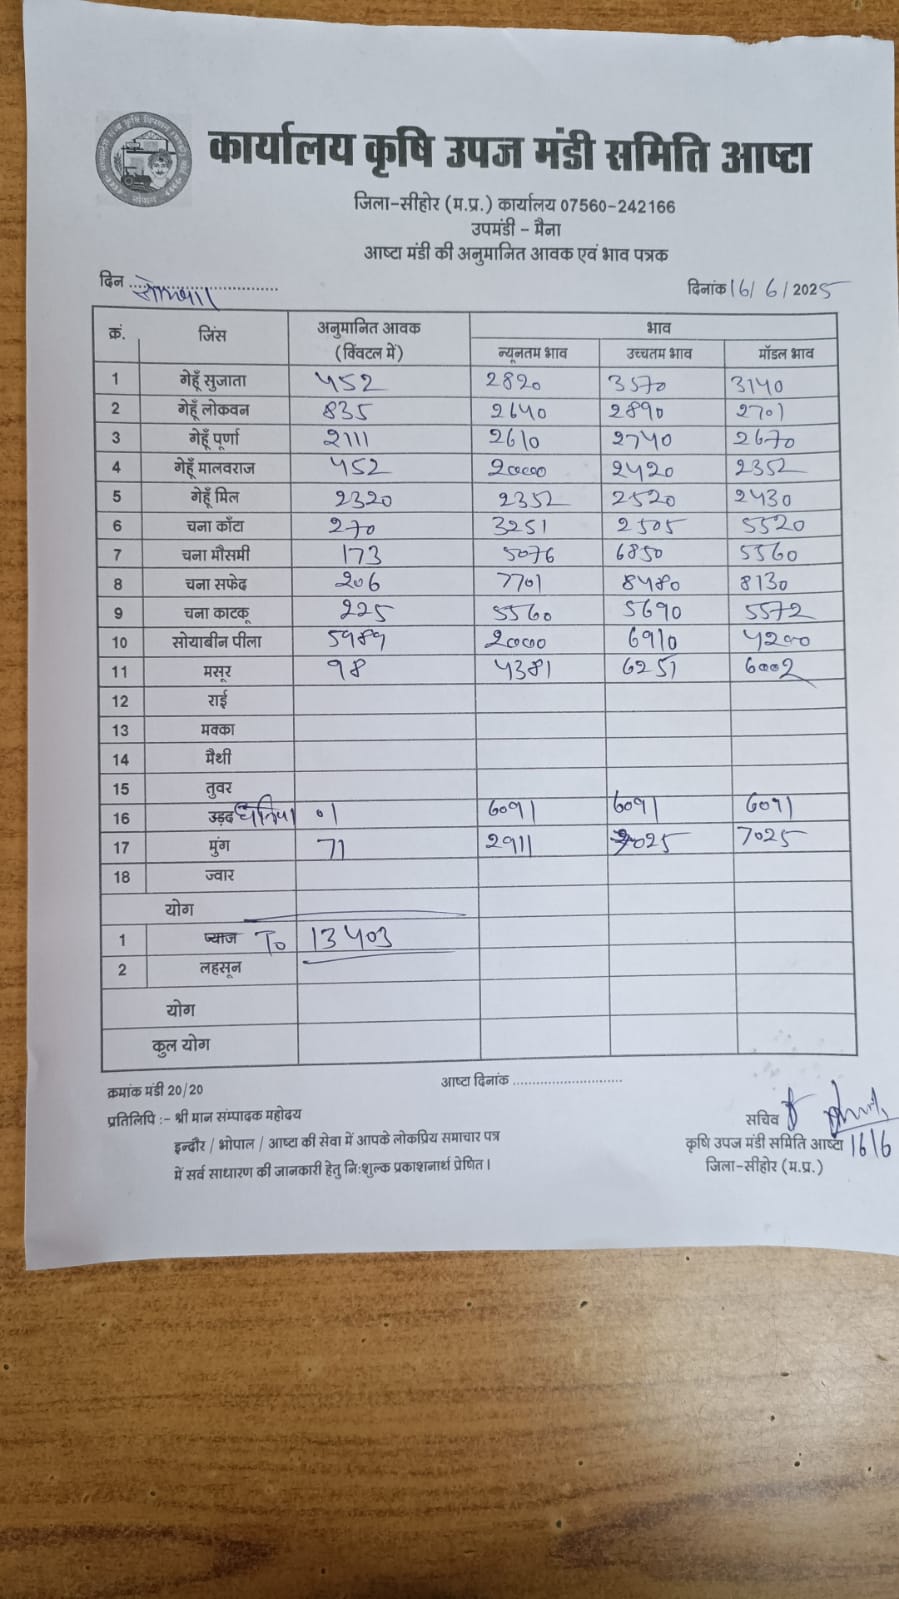 कार्यालय कृषि उपज मंडी समिति आष्टा
जिला-सीहोर (म.प्र.) कार्यालय 07560-242166
उपमंडी - मैना
आष्टा मंडी की अनुमानित आवक एवं भाव पत्रक
दिन सोमवार दिनांक 16/6/2025
क्रं. जिंस अनुमानित आवक (क्विंटल में) भाव
न्यूनतम भाव उच्चतम भाव मॉडल भाव
1 गेहूँ सुजाता 452 2820 3570 3140
2 गेहूँ लोकवन 835 2640 2890 2701
3 गेहूँ पूर्णा 2111 2610 2740 2670
4 गेहूँ मालवराज 452 2000 2420 2352
5 गेहूँ मिल 2320 2352 2520 2430
6 चना काँटा 270 3251 2505 5520
7 चना मौसमी 173 5076 6850 5560
8 चना सफेद 206 7701 8480 8130
9 चना काटकू 225 5560 5690 5572
10 सोयाबीन पीला 5989 2000 6910 4200
11 मसूर 98 4381 6251 6002
12 राई
13 मक्का
14 मैथी
15 तुवर
16 उड़द धनिया 01 6091 6091 6091
17 मुंग 71 2911 7025 7025
18 ज्वार
योग
1 प्याज To 13403
2 लहसून
योग
कुल योग
क्रमांक मंडी 20/20 आष्टा दिनांक ............................
प्रतिलिपि :- श्री मान सम्पादक महोदय
सचिव
इन्दौर / भोपाल / आष्टा की सेवा में आपके लोकप्रिय समाचार पत्र
कृषि उपज मंडी समिति आष्टा 16/6
में सर्व साधारण की जानकारी हेतु नि:शुल्क प्रकाशनार्थ प्रेषित।
जिला-सीहोर (म.प्र.)